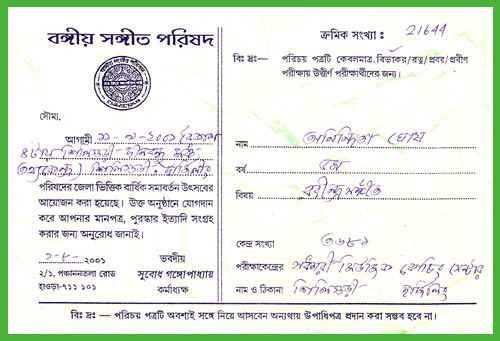 বঙ্গীয় সঙ্গীত পরিষদ
সৌম্য,
আগামী ১১-৯-২০০১ বিকাল
৪টায় শিলিগুড়ি-দীনবন্ধু মঞ্চ
শিলিগুড়ী, দার্জিলিং
পরিষদের জেলা ভিত্তিক বার্ষিক সমাবর্তন উৎসবের
আয়োজন করা হয়েছে। উক্ত অনুষ্ঠানে যোগদান
করে আপনার মানপত্র, পুরস্কার ইত্যাদি সংগ্রহ
করার জন্য অনুরোধ জানাই।
১-৮-২০০১ ভবদীয়
২/১, পঞ্চাননতলা রোড সুবোধ গঙ্গোপাধ্যায়
হাওড়া-৭১১ ১০১ কর্মাধ্যক্ষ
ক্রমিক সংখ্যা : 21644
বিঃ দ্রঃ— পরিচয় পত্রটি কেবলমাত্র বিভাকর/রত্ন/প্রবর/প্রবীণ
পরীক্ষায় উত্তীর্ণ পরীক্ষার্থীদের জন্য।
নাম অনিন্দিতা ঘোষ
বর্ষ ৫ম
বিষয় রবীন্দ্রসঙ্গীত
কেন্দ্র সংখ্যা ৩৬৮১
পরীক্ষাকেন্দ্রের মিউজিক কোচিং সেন্টার
নাম ও ঠিকানা শিলিগুড়ী দার্জিলিং
বিঃ দ্রঃ — পরিচয় পত্রটি অবশ্যই সঙ্গে নিয়ে আসবেন অন্যথায় উপাধিপত্র প্রদান করা সম্ভব হবে না।